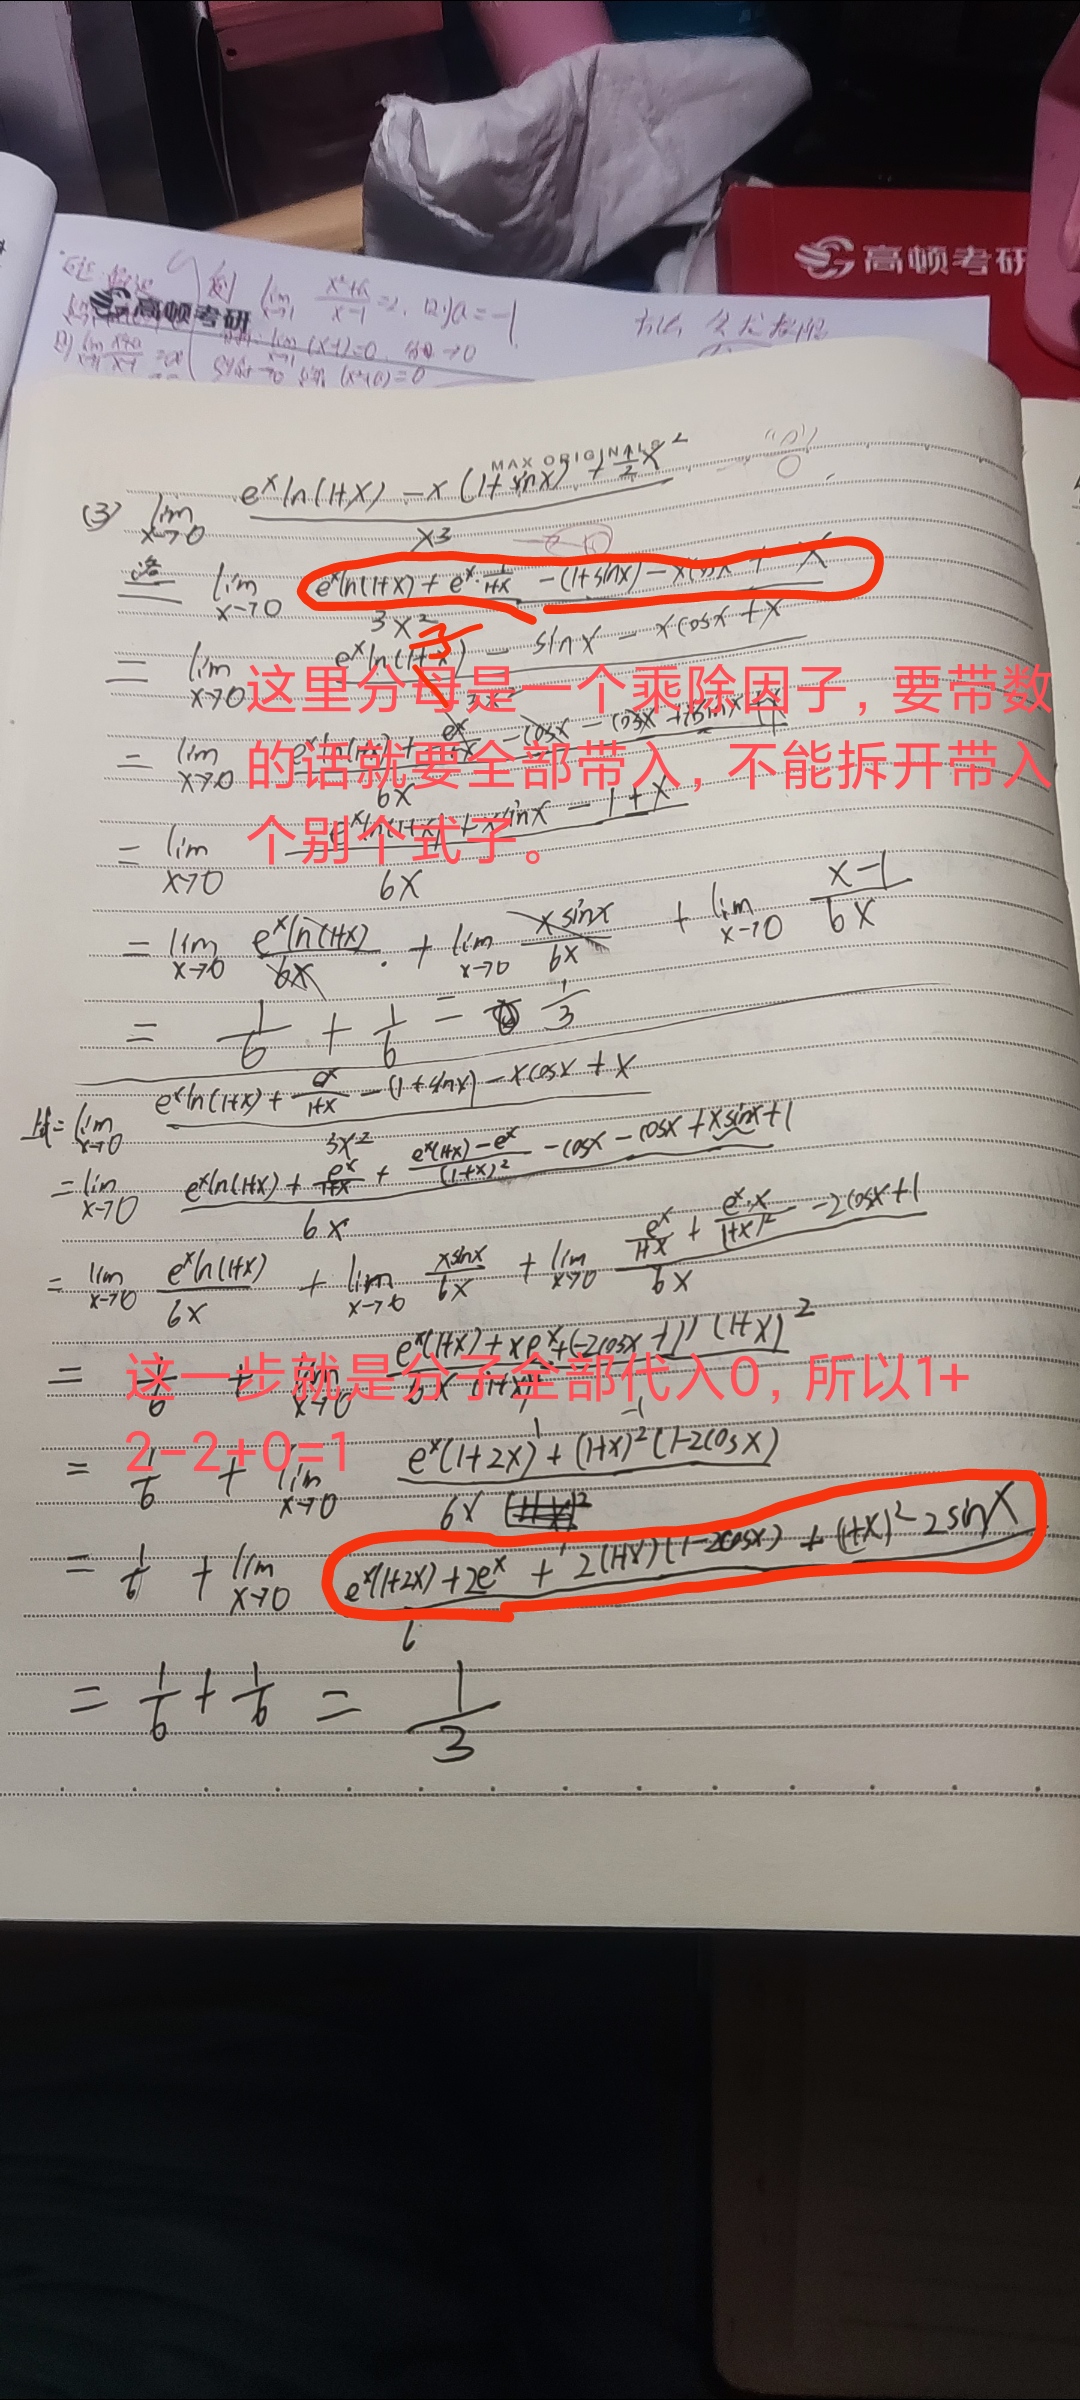 高顿考研
高顿考研
lim x→1 x²+a / x-1 =2, 则a=-1
MAX ORIGINALS
(3) lim x→0 e^x ln(1+x) - x(1+sinx) + 1/2 x² / x³
lim x→0 e^x ln(1+x) + e^x · 1/1+x - (1+sinx) - xcosx + x / 3x²
= lim x→0 e^x ln(1+x) - sinx - xcosx + x / 3x²
这里分母是一个乘除因子，要带数
= lim x→0 / 6x
的话就要全部带入，不能拆开带入
= lim x→0 e^x ln(1+x) + xsinx - 1 + x / 6x
个别个式子。
= lim x→0 e^x ln(1+x) / 6x + lim x→0 xsinx / 6x + lim x→0 x-1 / 6x
= 1/6 + 1/6 = 1/3
上式= lim x→0 e^x ln(1+x) + e^x/1+x - (1+sinx) - xcosx + x / 3x²
= lim x→0 e^x ln(1+x) + e^x/1+x + e^x(1+x)-e^x/(1+x)² - cosx - cosx + xsinx + 1 / 6x
= lim x→0 e^x ln(1+x) / 6x + lim x→0 xsinx / 6x + lim x→0 e^x/1+x + e^x·x/(1+x)² - 2cosx + 1 / 6x
= 1/6 + lim x→0 e^x(1+x) + xe^x + (-2cosx+1)(1+x)² / 6x(1+x)²
这一步就是分子全部代入0，所以1+
2-2+0=1
= 1/6 + lim x→0 e^x(1+2x) + (1+x)²(1-2cosx) / 6x
= 1/6 + lim x→0 e^x(1+2x) + 2e^x + 2(1+x)(1-2cosx) + (1+x)² 2sinx / 6
= 1/6 + 1/6 = 1/3